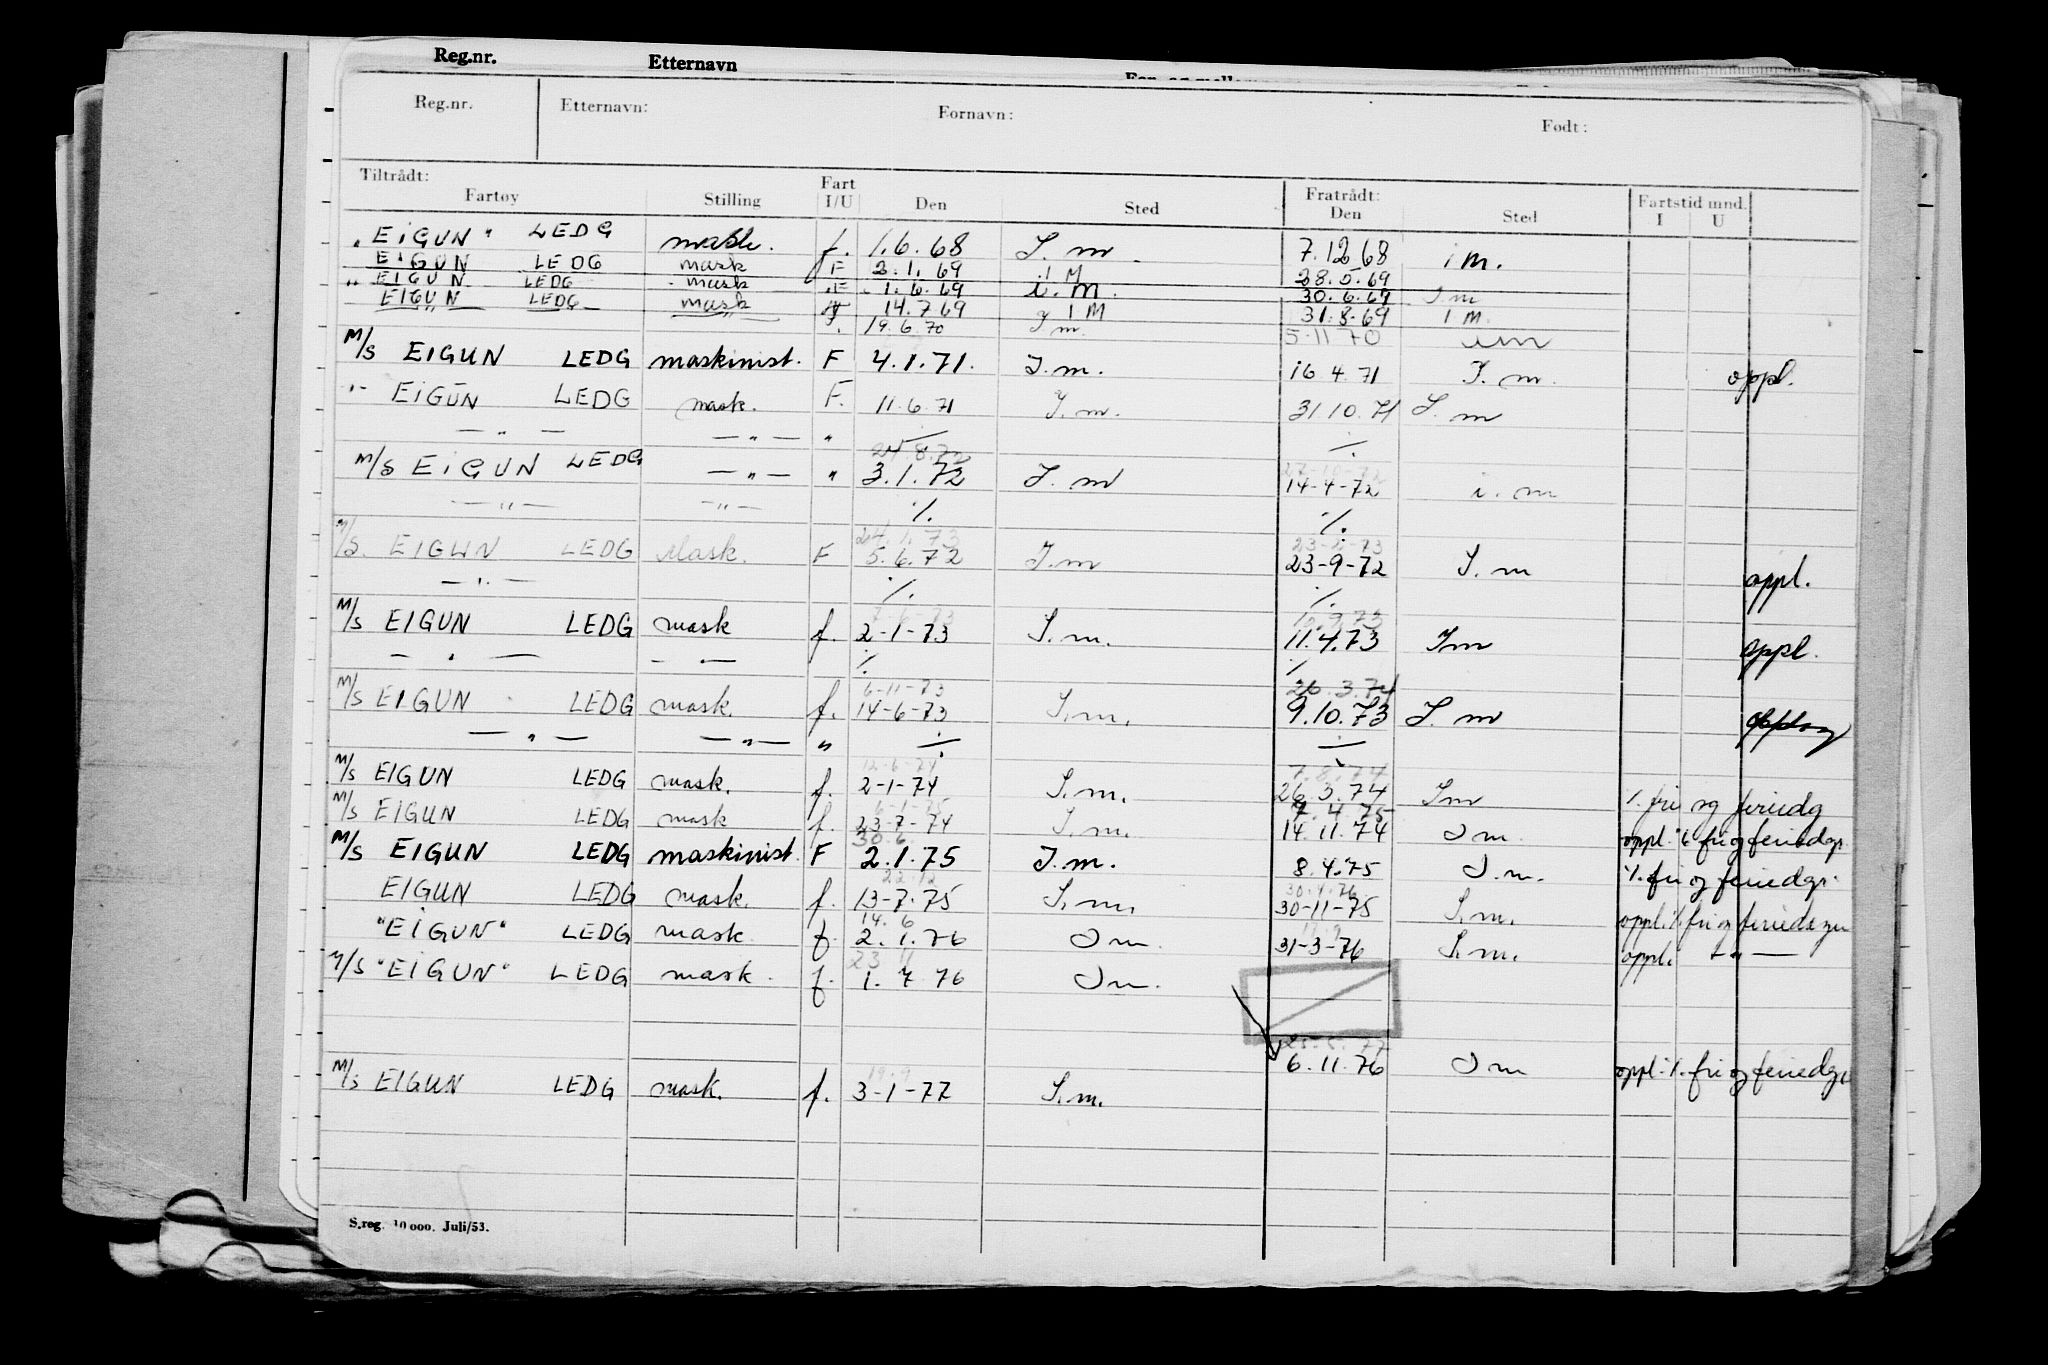 Reg.nr. Etternavn
Reg.nr. Etternavn: Fornavn: Født:
Tiltrådt: Fart Fratrådt: Fartstid mnd.
Fartøy Stilling I/U Den Sted Den Sted I U
"EIGUN" LEDG mask. f. 1.6.68 I.m. 7.12 68 i m.
EIGUN LEDG mask F 2.1.69 i M 28.5.69
" EIGUN LEDG mask F 1.6.69 i.m. 30.6.69 I m
EIGUN LEDG mask 14.7 69 I M 31.8.69 I M.
" " f. 19.6.70 I m. 5.11 70 i m
M/S EIGUN LEDG maskinist. F 4.1.71. I.m. 16 4.71 I.m. oppl.
"- EIGUN LEDG mask. F. 11.6.71 I.m. 31.10.71 I.m
— " — — " — " ./. ./.
24.8.72
M/S EIGUN LEDG — " — " 3.1.72 I.m 14-4-72 i.m
— " — — " — ./. ./.
24.1.73 23-2-73
M/S. EIGUN LEDG Mask. F 5.6.72 I.m 23-9-72 I.m oppl.
— " — ./. ./.
7-6-73
M/S EIGUN LEDG mask f. 2-1-73 I.m. 11.4.73 I m oppl.
— " — — " — ./. ./.
6-11-73 26.3.74
M/S EIGUN LEDG mask. f. 14-6-73 I.m. 9.10.73 I.m
— " — — " — " ./. ./.
12-6-74 7.8.74
M/S EIGUN LEDG mask. f. 2-1-74 I.m. 26.3.74 I m ./. fri og feriedg
6-1-75 7.4.75
M/S EIGUN LEDG mask f. 23-7-74 I.m. 14.11.74 I m. oppl. ./. fri og feriedgr.
30.6.
M/S EIGUN LEDG maskinist. F 2.1.75 I.m. 8.4.75 I.m. ./. fri og feriedgr.
22.12 30.4.76
EIGUN LEDG mask. f. 13-7-75 I.m. 30-11-75 I.m. oppl. ./. fri og feriedager
14.6
"EIGUN" LEDG mask f. 2.1.76 I m. 31-3-76 I.m. oppl. — " —
23 11
M/S "EIGUN" LEDG mask. f. 1.7 76 I m.
25.5.77
6.11.76 I m oppl. ./. fri og feriedgr
19.9
M/S EIGUN LEDG mask. f. 3-1-77 I.m.
S.reg. 10 000. Juli/53.